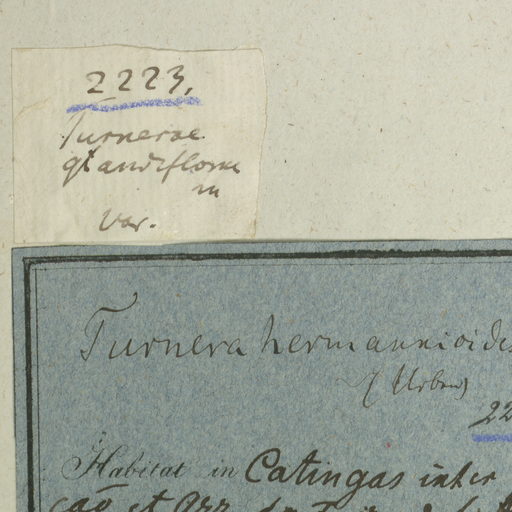 2223.
Turnerae
grandiflorae
var.
Turnera hermannioides
(Urban)
22
Habitat in Catingas inter
et